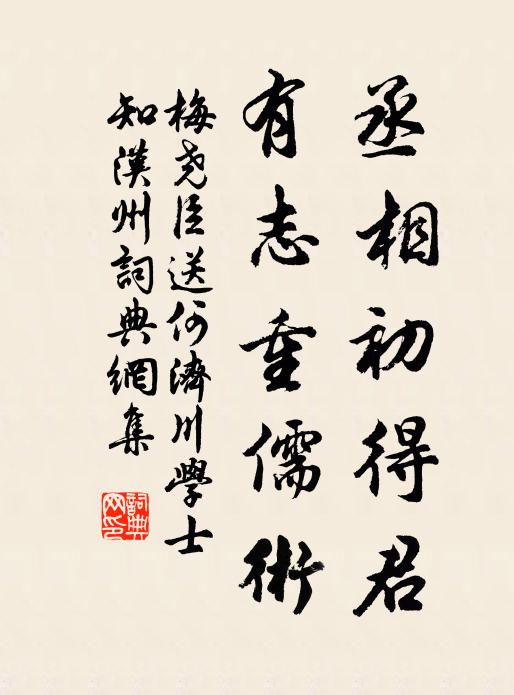 丞相初得君
有志重儒術
梅堯臣送何濟川學士
知漢州詞典網集
詞典
网印